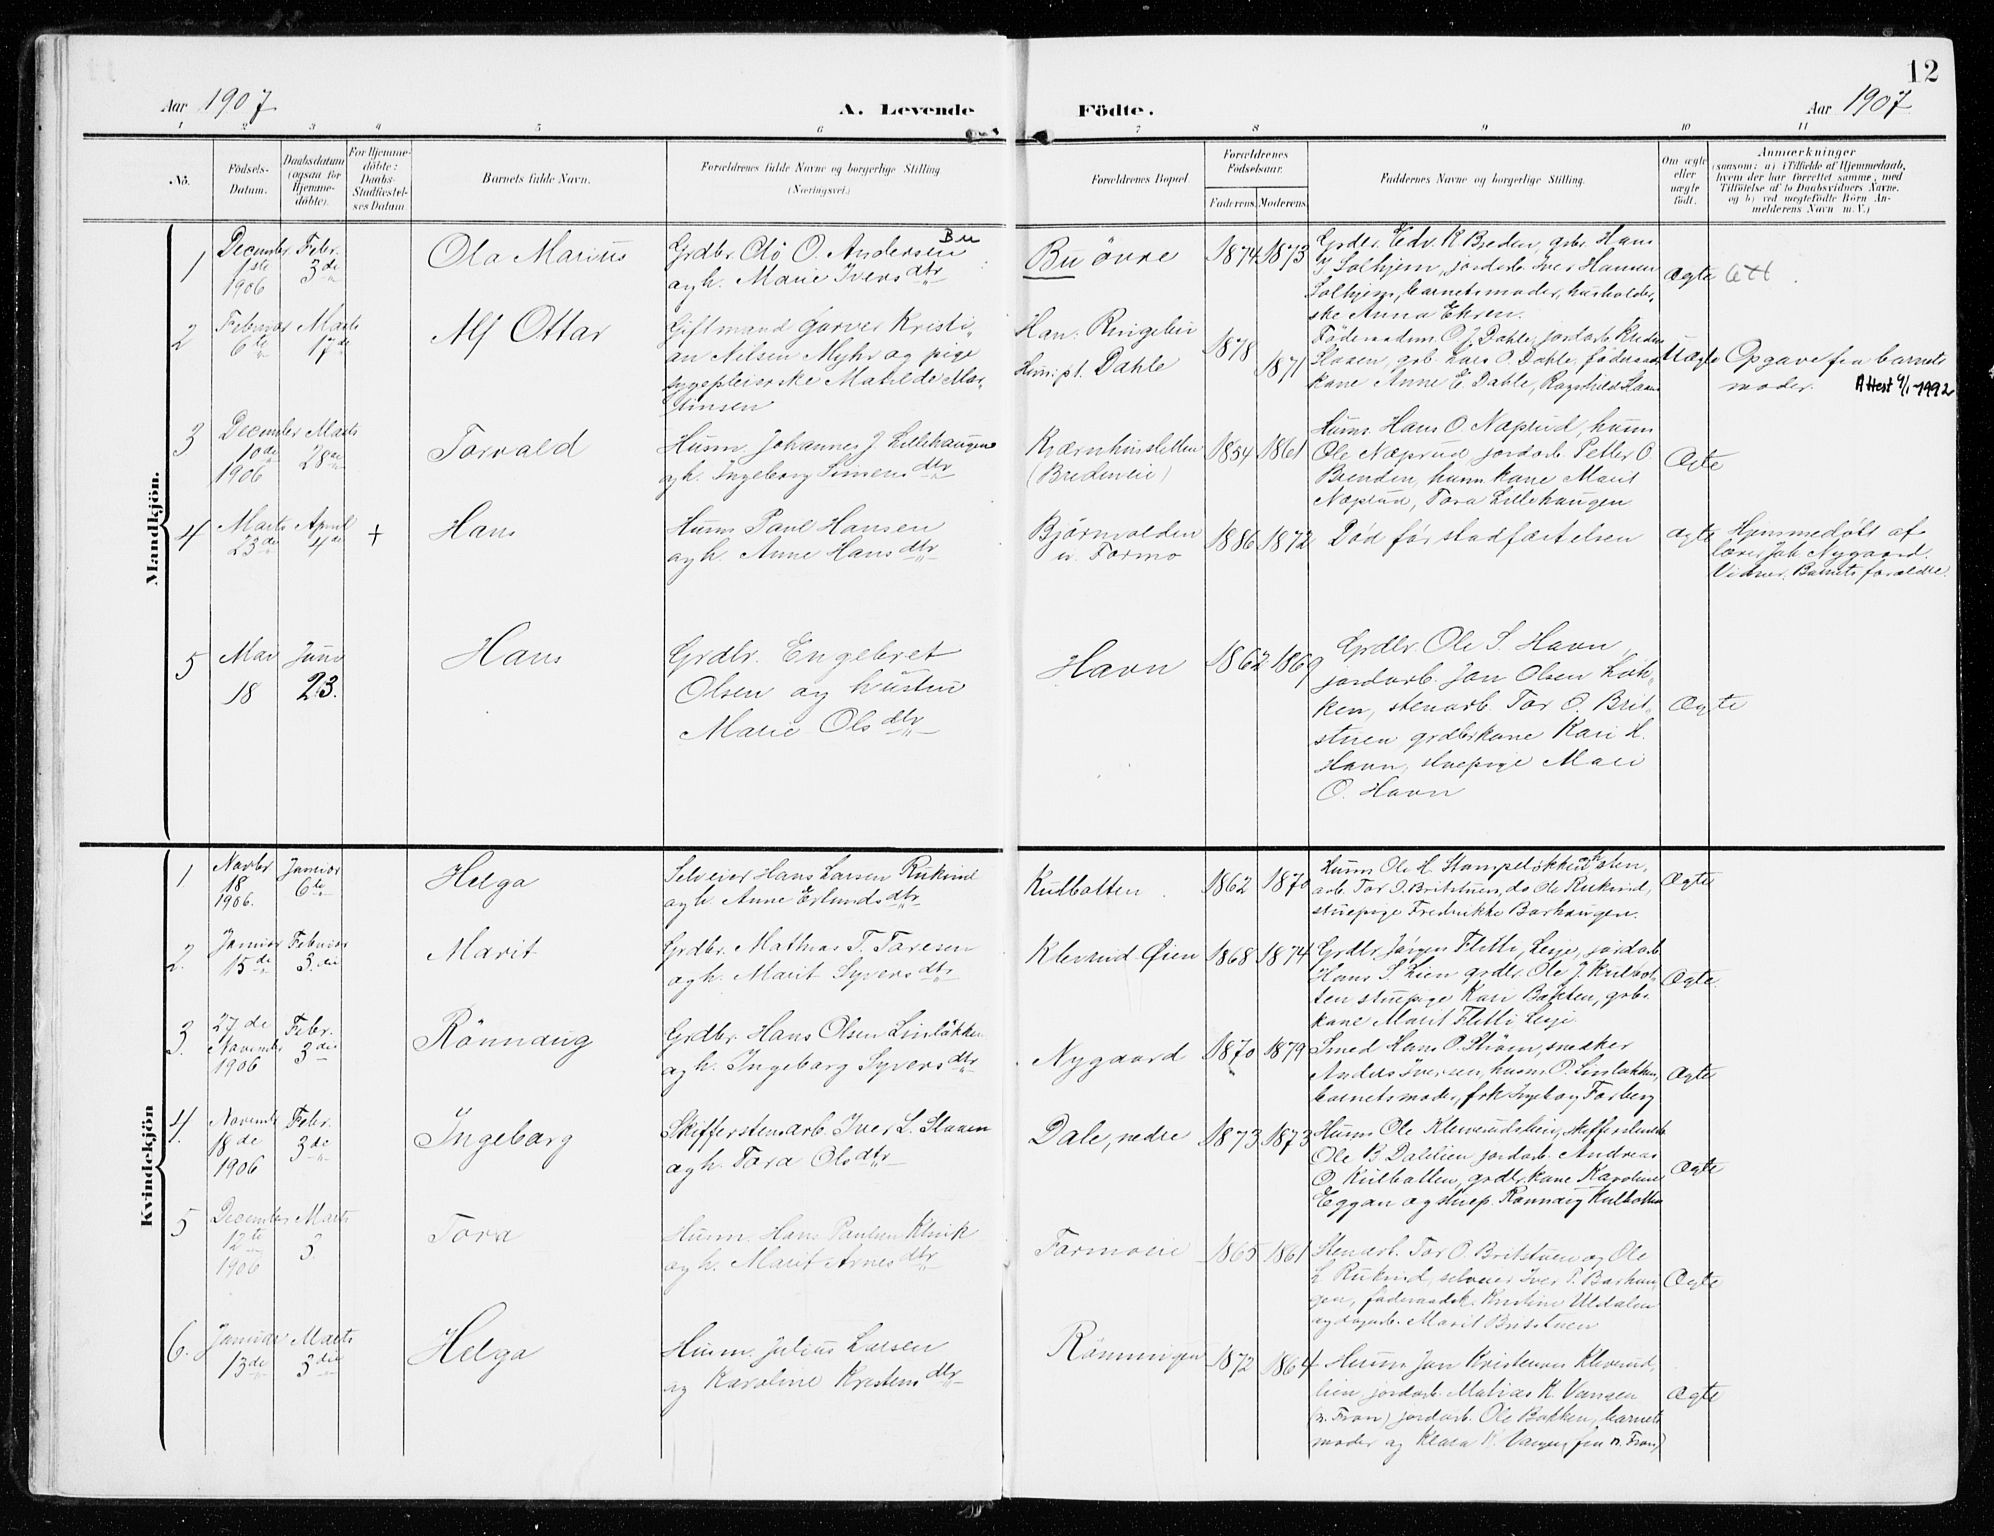 12
Aar 1907
A. Levende
Födte.
Aar 1907
1 2 3 4 5 6 7 8 9 10 11
No.
Födsels-
Datum.
Daabsdatum
(ogsaa for
Hjemme-
döbte).
For Hjemme-
döbte:
Daabs-
Stadfæstel-
ses Datum
Barnets fulde Navn.
Forældrenes fulde Navne og borgerlige Stilling
(Næringsvei.)
Forældrenes Bopæl
Forældrenes
Födselsaar.
Faderens. Moderens.
Faddernes Navne og borgerlige Stilling.
Om ægte
eller
uægte
födt.
Anmærkninger
(saasom: a) i Tilfælde af Hjemmedaab,
hvem der har forrettet samme, med
Tilföielse af to Daabsvidners Navne,
og b) ved uægtefödte Börn An-
melderens Navn m. V.)
Mandkjön.
1
December
1ste
1906
Febr.
3de
Ola Marius
Grdbr Olö O. Andersen Bu
og h. Marie Iversdtr
Bu övre
1874 1873
Grdbr. Edv. K Breden, grbr. Hans
Solhjem, jordarb. Iver Hansen
Solhjem, barnets moder, husholder-
ske Anna Ekren.
Ægte
2
Februar
6te
Marts
17de
Alf Ottar
Gift mand garver Kristi-
an Nilsen Myhr og pige
sygepleierske Matilde Mar-
tinsen
Han: Ringebu
Hun: pl. Dahle
1878
1871
Föderaadsm. O. J. Dahle, jordarb. Kristen
Slaaen, grb. Lars O. Dahle, föderaads-
kane Anne E. Dahle, Ragnhild Slaaen
Uægte
Opgave fra barnets
moder. Attest 9/1-1992
3
December
10de
1906
Marts
28de
Torvald
Husm. Johannes J. Lillehaugen
og h. Ingeborg Simensdtr
Kjærnhussletten
(Bredeneie)
1854 1861
Husm. Hans O. Næprud, husm
Ole Næprud, jordarb. Petter O
Brenden, husm.kane Marit
Næprud, Tora Lillehaugen
Ægte
4
Marts
23de
April
4de
+
Hans
Husm Paul Hansen
og h. Anne Hansdtr
Björnvolden
u. Formo
1886 1872
Död för stadfæstelsen
ægte
Hjemmedøbt af
lærer Joh Nygaard.
Vidner: Barnets forældre.
5
Mai
18
Juni
23.
Hans
Grdbr. Engebret
Olsen og hustru
Marie Olsdtr
Havn
1862 1869
Grdbr. Ole S. Havn,
jordarb. Jon Olsen Løk-
ken, stenarb. Tor O. Brit-
stuen grdbrkane Kari H.
Havn, stuepige Mari
O. Havn
Ægte
Kvindekjön
1
Novbr
18
1906.
Januar
6te
Helga
Selveier Hans Larsen Rukind
og h. Anne Erlandsdtr
Kulbotten
1862 1870
Husm Ole H. Stampeløkken, sten-
arb. Tor O. Britstuen, do Ole Rukind,
stuepige Fredrikke Barhaugen.
Ægte
2.
Januar
15de
Februar
3die
Marit
Grdbr. Mathias T. Toresen
og h. Marit Syversdtr
Klevrud-Øien
1868 1874
Grdbr. Jörgen Flitti, Lesje, jordarb
Hans S. Lien grdbr. Ole J. Kulbot-
ten stuepige Kari Bakken, grbr.
kane Marit Flitti Lesje.
Ægte
3.
27de
November
1906
Febr.
3die
Rönnaug
Grdbr. Hans Olsen Linløkken
og h. Ingeborg Syversdtr
Nygaard
1870 1879
Smed Hans O. Ström, snedker
Anders Iversen, husm O. Linløkken,
barnets moder, frk Ingeborg Forberg
Ægte
4.
November
18de
1906
Febr.
3de
Ingeborg
Skifferstensarb. Iver L. Slaaen
og h. Tora Olsdtr
Dale, nedre
1873 1873
Husm Ole Kleverudshaug, skifferstensarb
Ole B. Dahlien jordarb Andreas
O. Kulbotten, grdbr.kane Karoline
Eggan og stuep. Rönnaug Kulbotten
Ægte
5
December
12te
1906
Marts
3
Tora
Husm. Hans Paulsen Klevk
og h. Marit Arnesdtr
Formoeie
1865 1861
Stenarb. Tor O. Britstuen og Ole
L Rukind, selveier Iver P. Barhau-
gen, föderaadsk. Kristine Ulsdalen
og dagarb. Marit Britstuen
Ægte
6.
Januar
13de
Marts
3die
Helga
Husm. Julius Larsen
og Karoline Kristensdtr
Rönningen
1872 1864
Husm Jon Kristensen Kleverud-
lien, jordarb. Matias K. Vangen
(n. Fron) jordarb. Ole Bakken, barnets
moder og Klara K. Vangen (fra n. Fron)
Ægte